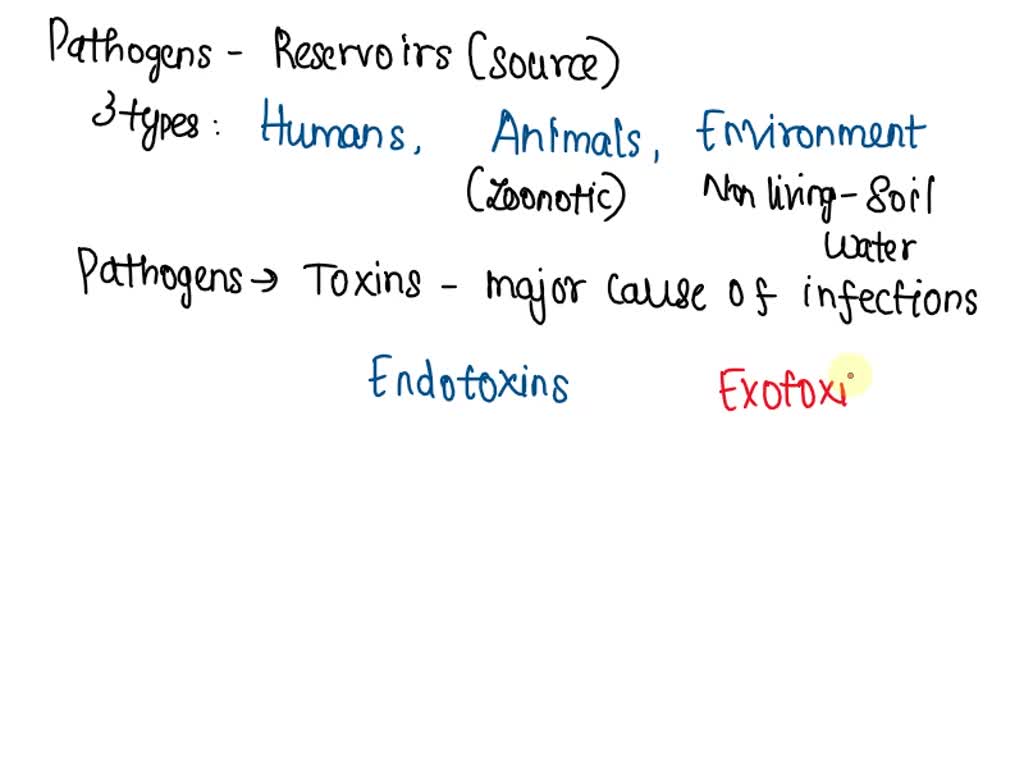 Pathogens - Reservoirs (source)
3 types: Humans, Animals, Environment
(Zoonotic) Non living - Soil
Water
Pathogens → Toxins - major cause of infections
Endotoxins Exotoxi